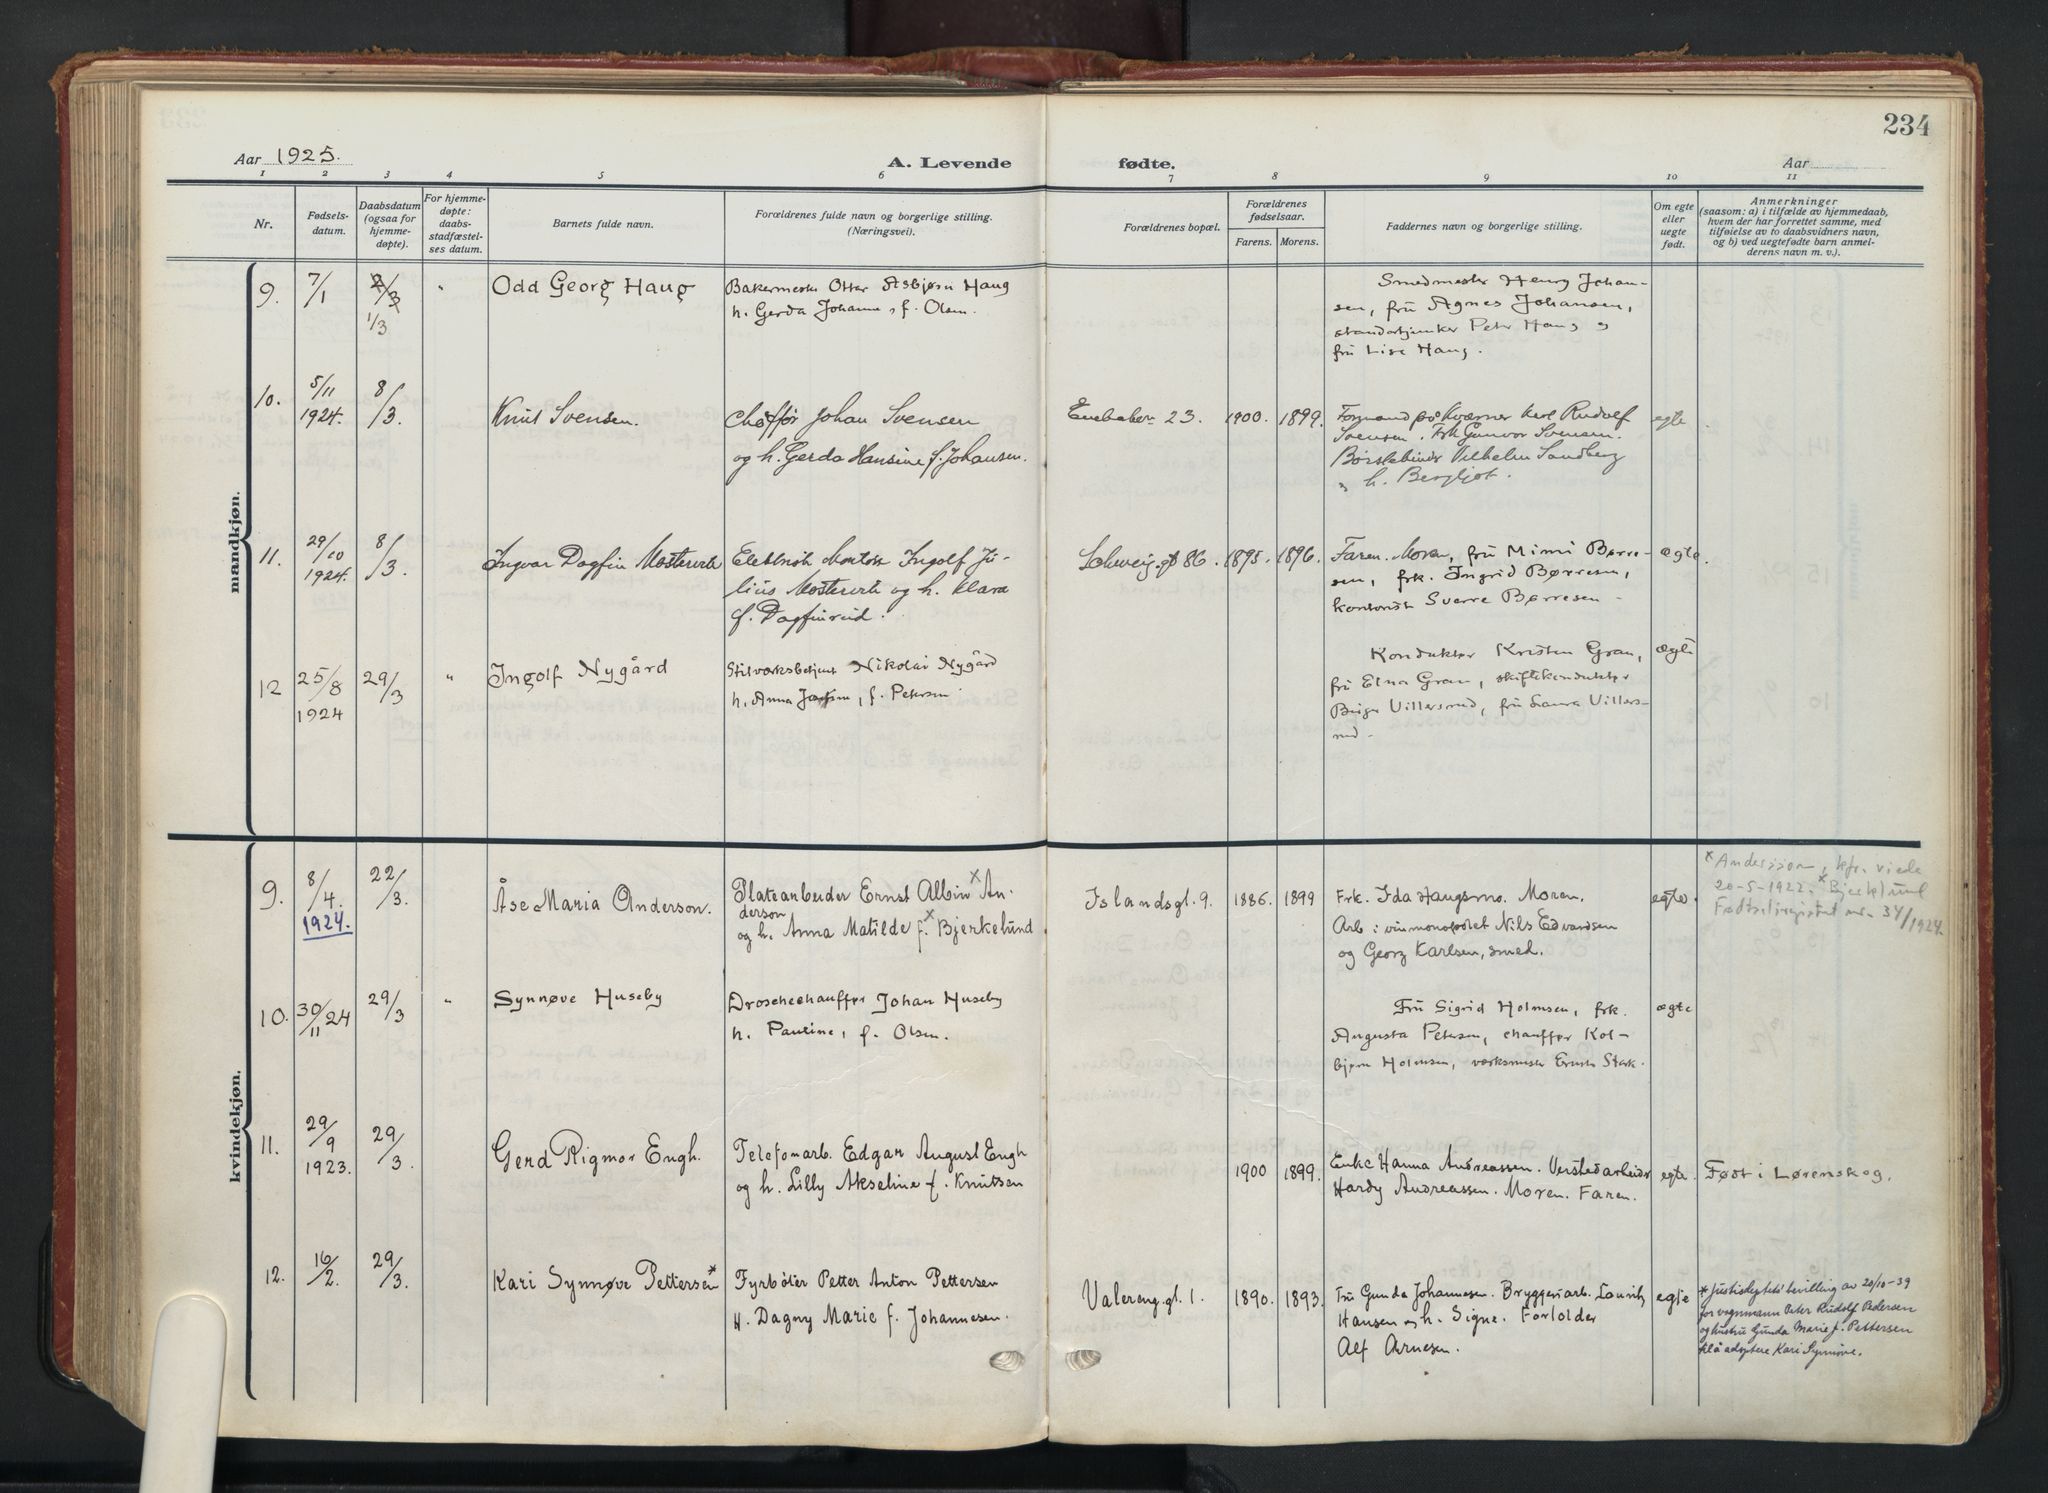 234
Aar 1925.
A. Levende fødte.
Aar
1 2 3 4 5 6 7 8 9 10 11
Nr.
Fødsels-
datum.
Daabsdatum
(ogsaa for
hjemme-
døpte).
For hjemme-
døpte:
daabs-
stadfæstel-
ses datum.
Barnets fulde navn.
Forældrenes fulde navn og borgerlige stilling.
(Næringsvei).
Forældrenes bopæl.
Forældrenes
fødselsaar.
Farens. Morens.
Faddernes navn og borgerlige stilling.
Om egte
eller
uegte
født.
Anmerkninger
(saasom: a) i tilfælde av hjemmedaab,
hvem der har forrettet samme, med
tilføielse av to daabsvidners navn,
og b) ved uegtefødte barn anmel-
derens navn m. v.).
mandkjøn.
9.
7/1
1/3
"
Odd Georg Haug
Bakermester Otter Asbjørn Haug
h. Gerda Johanne, f. Olsen.
Smedmester Henry Johan-
sen, fru Agnes Johansen,
standartjunker Peter Haug og
fru Lise Haug.
10.
5/11
1924.
8/3.
Knut Svensen.
Choffør Johan Svensen
og h. Gerda Hansine f. Johansen.
Enebakv. 23.
1900.
1899.
Formand på Kværner Karl Rudolf
Svensen. Frk Gunvor Svensen.
Børstebinder Vilhelm Sandberg
" h. Bergljot.
egte
11.
29/10
1924.
8/3.
Ingvar Dagfin Mostervik
Elektrisk Montør Ingolf Ju-
lius Mostervik og h. Klara
f. Dagfinrud.
Solveig.gt 86.
1895.
1896.
Faren. Moren, fru Mimi Børre-
sen, frk. Ingrid Børresen,
kontorist Sverre Børresen -
ægte
12
25/8
1924
29/3
"
Ingolf Nygård
Nikolai Nygård
h. Anna, f. Petersen.
Konduktør Kristen Gran,
fru Etna Gran, skiftekonduktør
Birger Villersrud, fru Laura Villers-
rud -
ægte
kvindekjøn.
9.
8/4.
1924.
22/3.
Åse Maria Anderson.
Platearbeider Ernst Albin × An-
derson
og h. Anna Matilde f. × Bjerkelund
Islandsgt. 9.
1886.
1899
Frk. Ida Haugsmo. Moren.
Arb. i vinmonopolet Nils Edvardsen
og Georg Karlsen, smed.
egte.
× Andersson, kfr. viede
20-5-1922. × Bjerklund
Fødselsregistret nr. 34/1924.
10.
30/11 24
29/3
"
Synnøve Huseby
Droschechauffør Johan Huseby
h. Pauline, f. Olsen.
Fru Sigrid Holmsen, frk.
Augusta Petersen, chauffør Kol-
bjørn Holmsen, verksmester Ernst Stark.
ægte
11.
29/9
1923.
29/3.
Gerd Rigmor Engh.
Telefonarb. Edgar August Engh
og h. Lilly Akseline f. Knutsen
1900
1899.
Enke Hanna Andreassen. Verkstedarbeider
Hardy Andreassen. Moren. Faren.
egte.
Født i Lørenskog.
12.
16/2.
29/3.
Kari Synnøve Pettersen*
Fyrbøter Petter Anton Pettersen
H. Dagny Marie f. Johannesen.
Valereng.gt. 1.
1890.
1893.
Fru Gunda Johannesen. Bryggeriarb. Lauritz
Hansen og h. Signe. Forlolder
Alf Arnesen.
egte
* Justisdeptets bevilling av 20/10-39
for vognmann Peter Rudolf Pedersen
og hustru Gunda Marie f. Pettersen
til å adoptere Kari Synnøve.